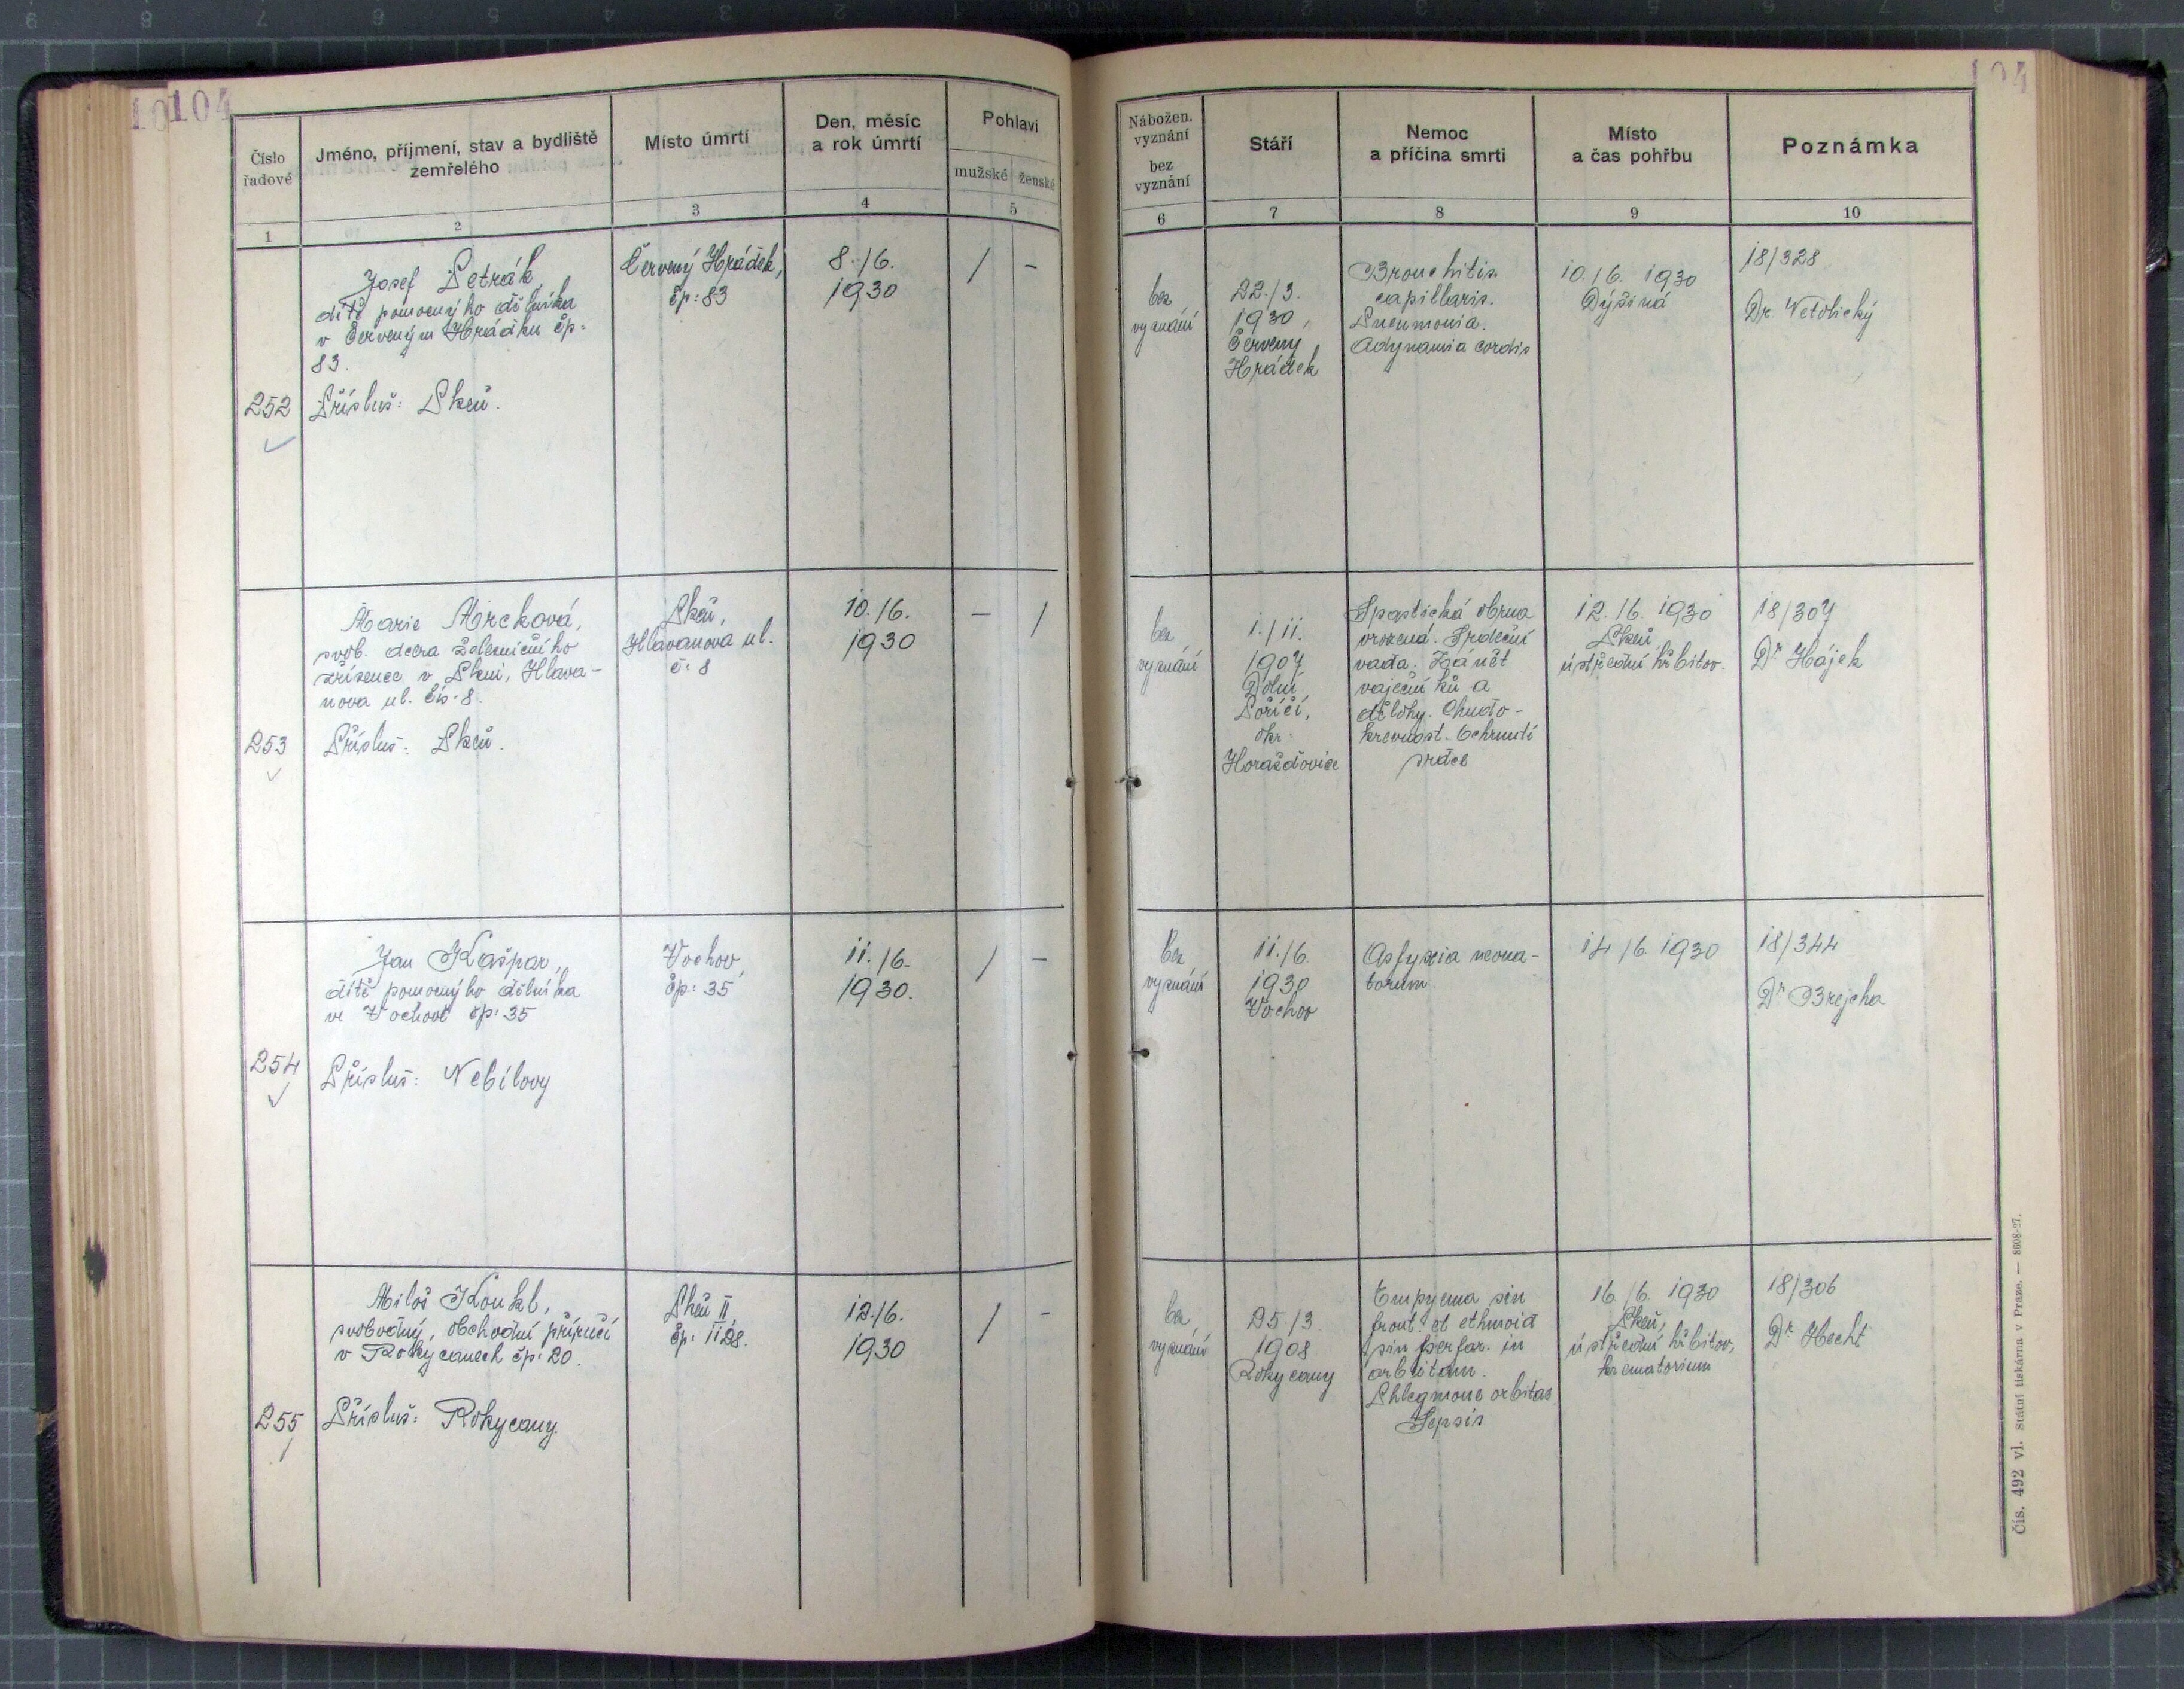 104
Číslo
řadové
Jméno, příjmení, stav a bydliště
zemřelého
Místo úmrtí
Den, měsíc
a rok úmrtí
Pohlaví
mužské ženské
1 2 3 4 5
Josef Petrák,
dítě pomocného dělníka
v Červeným Hrádku čp.
83.
252 Přísluš: Plzeň.
Červený Hrádek,
čp: 83
8./6.
1930
/ -
Marie Mrcková,
svob. dcera železničního
zřízence v Plzni, Hlava-
nova ul. čís. 8.
253 Přísluš: Plzeň.
Plzeň,
Hlavanova ul.
č: 8
10./6.
1930
- /
Jan Kašpar,
dítě pomocného dělníka
ve Vochově čp: 35
254 Přísluš: Nebílovy
Vochov,
čp: 35
11./6.
1930.
/ -
Miloš Koukl,
svobodný, obchodní příručí
v Rokycanech čp: 20.
255 Přísluš: Rokycany.
Plzeň II
čp: 1128.
12./6.
1930
/ -
104
Nábožen.
vyznání
bez
vyznání
Stáří
Nemoc
a příčina smrti
Místo
a čas pohřbu
Poznámka
6 7 8 9 10
bez
vyznání
22./3.
1930,
Červený
Hrádek
Bronchitis
capillaris.
Pneumonia.
Adynamia cordis
10./6. 1930
Dýšiná
18/328
Dr. Netolický
bez
vyznání
1./11.
1907
Dolní
Poříčí,
okr.
Horažďovice
Spastická obrna
vrozená. Srdeční
vada. Zánět
vaječníků a
dělohy. Chudo-
krevnost. Ochrnutí
srdce
12./6. 1930
Plzeň,
ústřední hřbitov.
18/307
Dr Hájek
bez
vyznání
11./6.
1930
Vochov
Asfyxia neona-
torum.
14./6. 1930
18/344
Dr Brejcha
bez
vyznání
25./3.
1908
Rokycany
Empyema sin
front. et ethmoid
sin perfor. in
orbitam.
Phlegmone orbitae.
Sepsis
16./6. 1930
Plzeň,
ústřední hřbitov,
krematorium
18/306
Dr. Hecht
Čís. 492 vl. Státní tiskárna v Praze. — 8608-27.